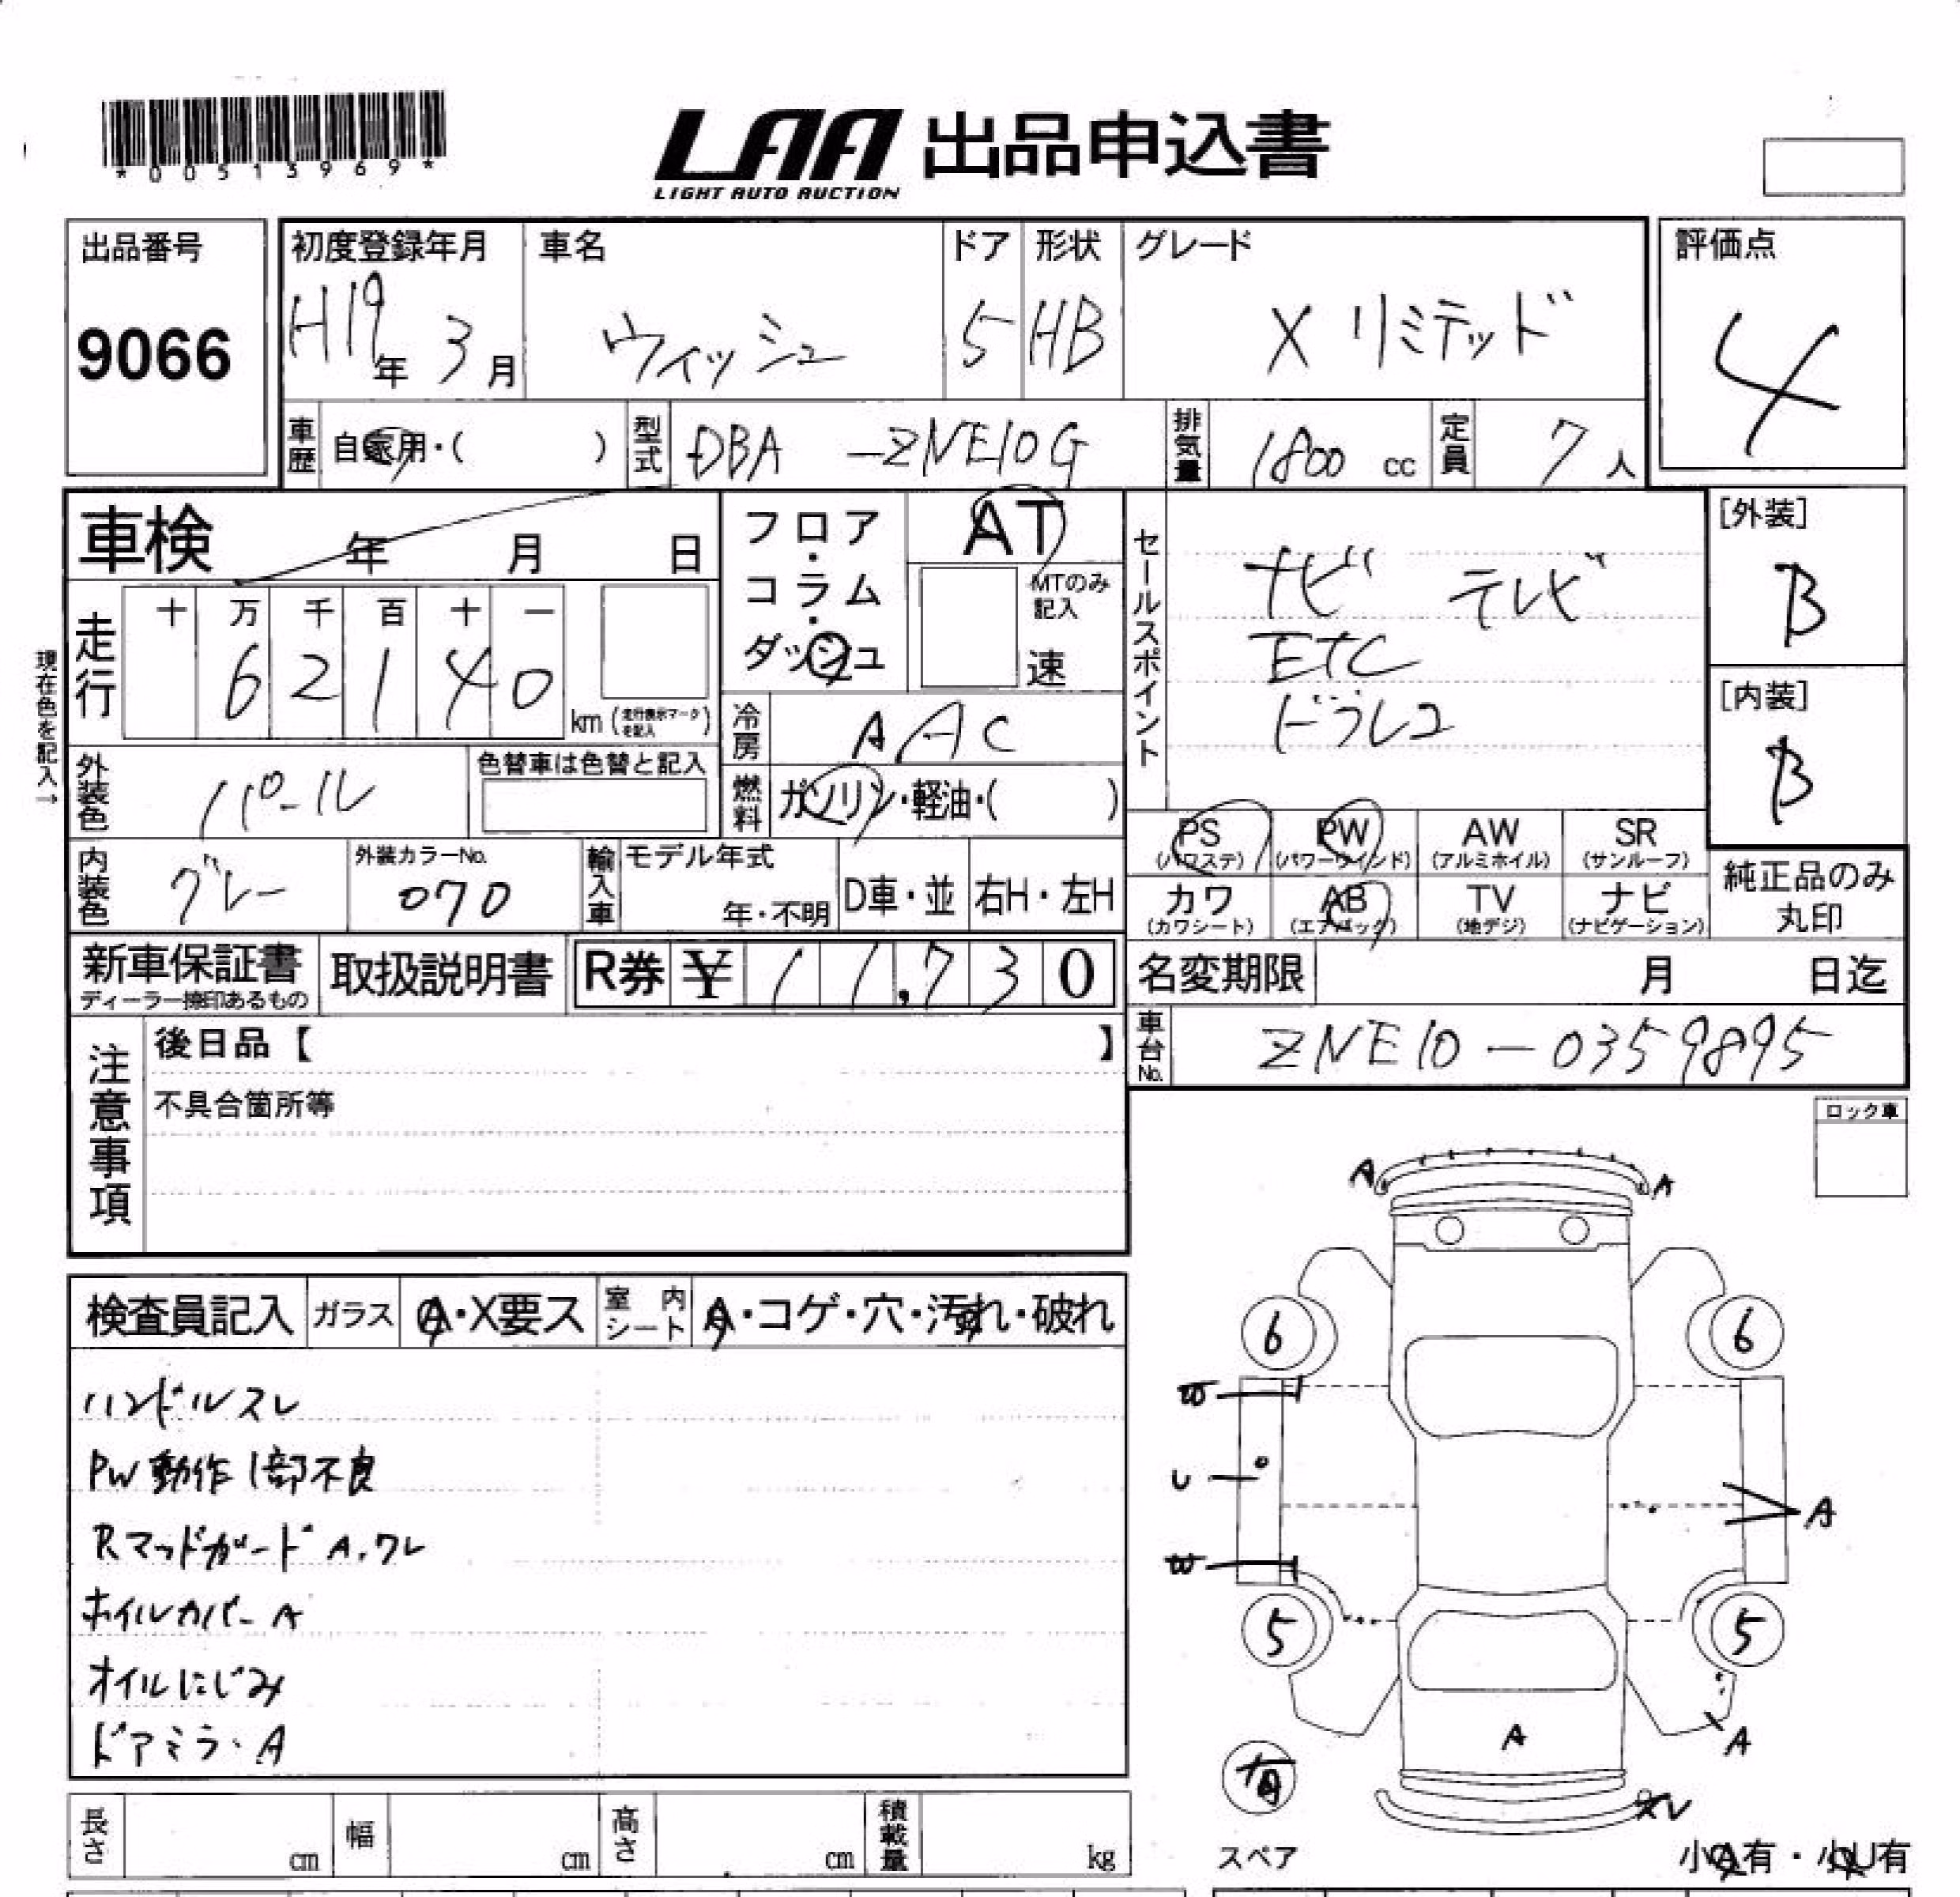 *00513969*
LAA 出品申込書
LIGHT AUTO AUCTION
出品番号
9066
初度登録年月
H19年 3月
車名
ウィッシュ
ドア
5
形状
HB
グレード
X リミテッド
評価点
4
車歴 自家用・( )
型式 DBA -ZNE10G
排気量 1800 cc
定員 7人
車検 年 月 日
現在色を記入→
走行 十 万 千 百 十 一
6 2 1 4 0
km (走行表示マークを記入)
フロア・コラム・ダッシュ
AT
MTのみ記入
速
冷房 AAC
燃料 ガソリン・軽油・( )
外装色 パール
色替車は色替と記入
内装色 グレー
外装カラーNo.
070
輸入車 モデル年式
年・不明
D車・並
右H・左H
セールスポイント
ナビ テレビ
ETC
ドラレコ
[外装]
B
[内装]
B
PS (パワステ) PW (パワーウインド) AW (アルミホイル) SR (サンルーフ)
カワ (カワシート) AB (エアバック) TV (地デジ) ナビ (ナビゲーション)
純正品のみ
丸印
新車保証書
ディーラー捺印あるもの
取扱説明書
R券 ¥ 11,730
名変期限 月 日迄
車台No. ZNE10-0359895
注意事項
後日品【 】
不具合箇所等
ロック車
検査員記入 ガラス A・X要ス 室内シート A・コゲ・穴・汚れ・破れ
ハンドルスレ
PW動作1部不良
Rマッドガード A,ワレ
ホイルカバー A
オイルにじみ
ドアミラー A
A A
6 6
W
U
A
W
5 5
A
A
有
スレ
スペア
小A有・小U有
長さ cm
幅 cm
高さ cm
積載量 kg